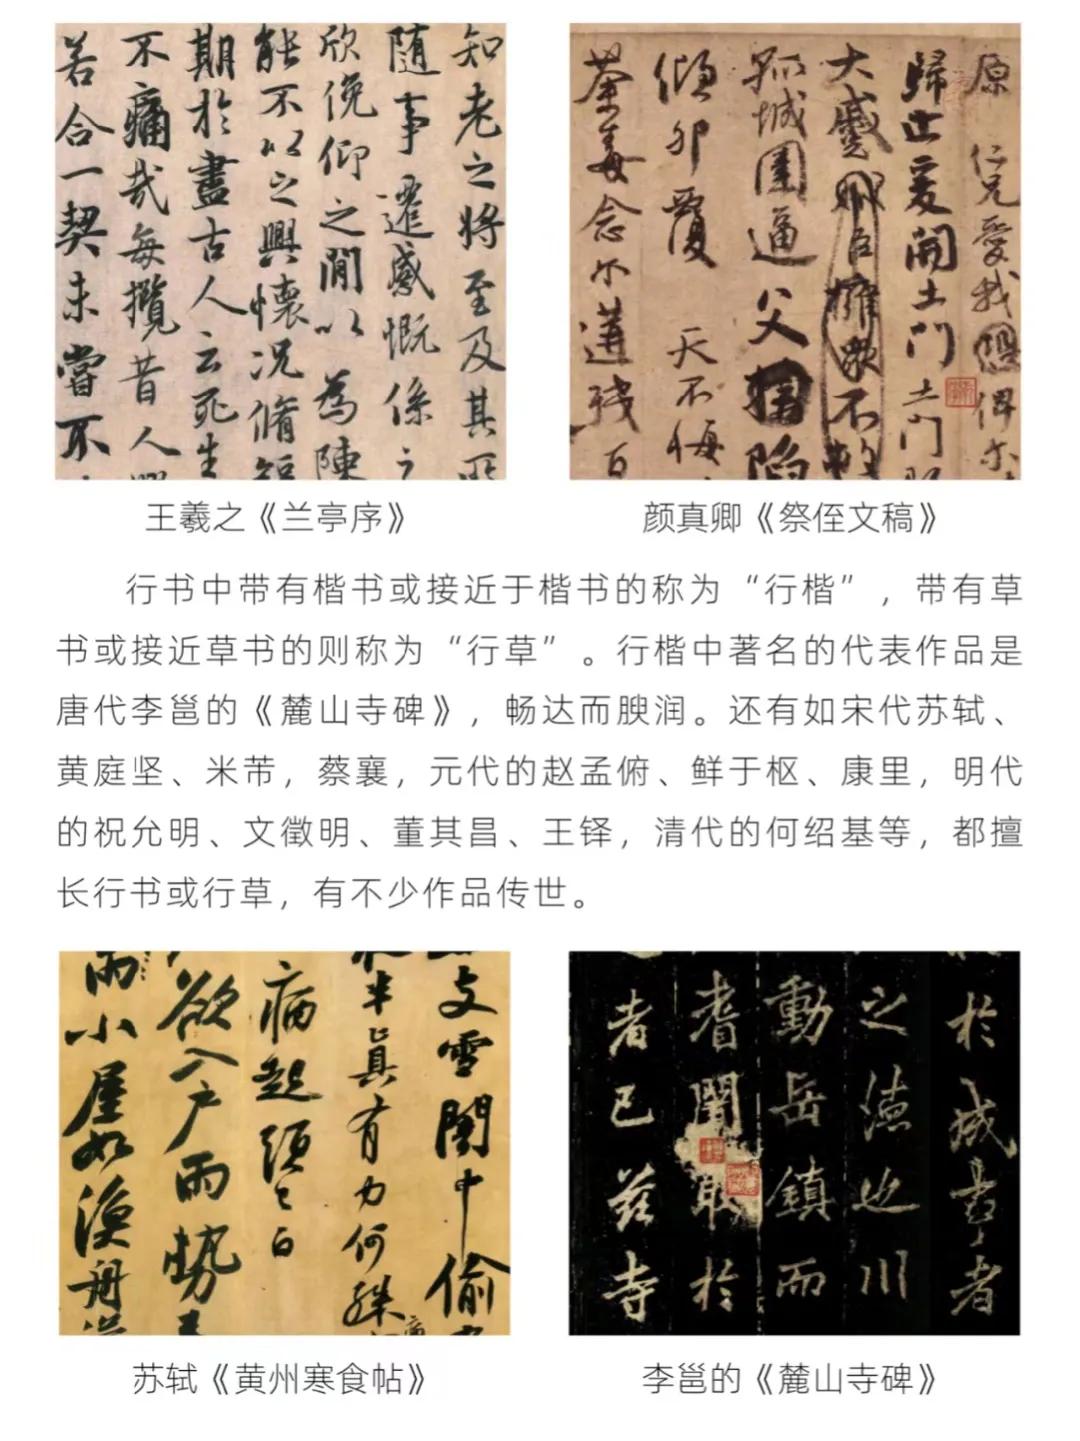 知老之将至及其
隨事遷感慨係之
欣俛仰之間以為陳
能不以之興懷況脩短
期於盡古人云死生
不痛哉每攬昔人
若合一契未嘗不
原仁兄愛我俾尔
歸止爰開土門土門
大蹙擁眾不
孤城圍逼父陷
傾卵覆天不悔
荼毒念尔遘殘百
王羲之《兰亭序》
颜真卿《祭侄文稿》
行书中带有楷书或接近于楷书的称为“行楷”，带有草
书或接近草书的则称为“行草”。行楷中著名的代表作品是
唐代李邕的《麓山寺碑》，畅达而腴润。还有如宋代苏轼、
黄庭坚、米芾，蔡襄，元代的赵孟俯、鲜于枢、康里，明代
的祝允明、文徵明、董其昌、王铎，清代的何绍基等，都擅
长行书或行草，有不少作品传世。
雪闇中偷
半真有力何殊
病起須已白
欲入户雨势
雨小屋如漁舟
於者
之德也川
動岳鎮而
耆闍取於
者已兹寺
苏轼《黄州寒食帖》
李邕的《麓山寺碑》